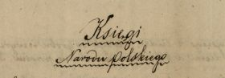 Księgi
Narodu Polskiego